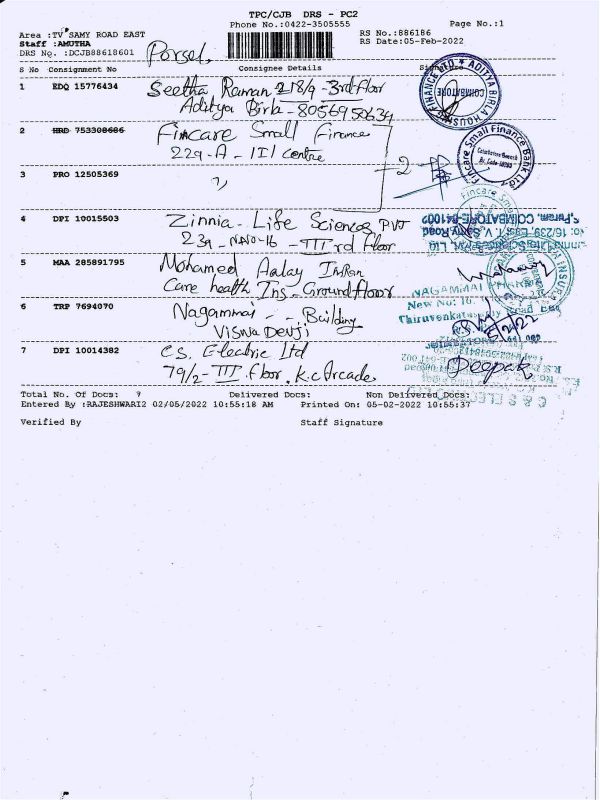 TPC/CJB DRS - PC2
Phone No.:0422-3505555
Page No.:1
Area :TV SAMY ROAD EAST
Staff :AMUTHA
DRS No. :DCJB88618601
RS No.:886186
RS Date:05-Feb-2022
S No Consignment No Consignee Details Signature
1 EDQ 15776434 Seetha Raman 218/9 - 3rd floor
Aditya Birla - 8056950634
ADITYA BIRLA
COIMBATORE
2 HRD 753308686 Fincare Small Finance
229-A - III centre
Fincare Small Finance Bank Ltd
3 PRO 12505369 "
2
4 DPI 10015503 Zinnia - Life Sciences PVT
239 - III rd floor
COIMBATORE-641002
5 MAA 285891795 Mohamed Aalay
Care health Ins - Ground floor
6 TRP 7694070 Nagammai - - Building
Viswa Devji
NAGAMMAI
New No: 16
5/2/22
7 DPI 10014382 C.S. Electric Ltd
79/2 - III floor, K.C Arcade
Deepak
Total No. Of Docs: 7 Delivered Docs: Non Delivered Docs:
Entered By :RAJESHWARI2 02/05/2022 10:55:18 AM Printed On: 05-02-2022 10:55:37
Verified By Staff Signature